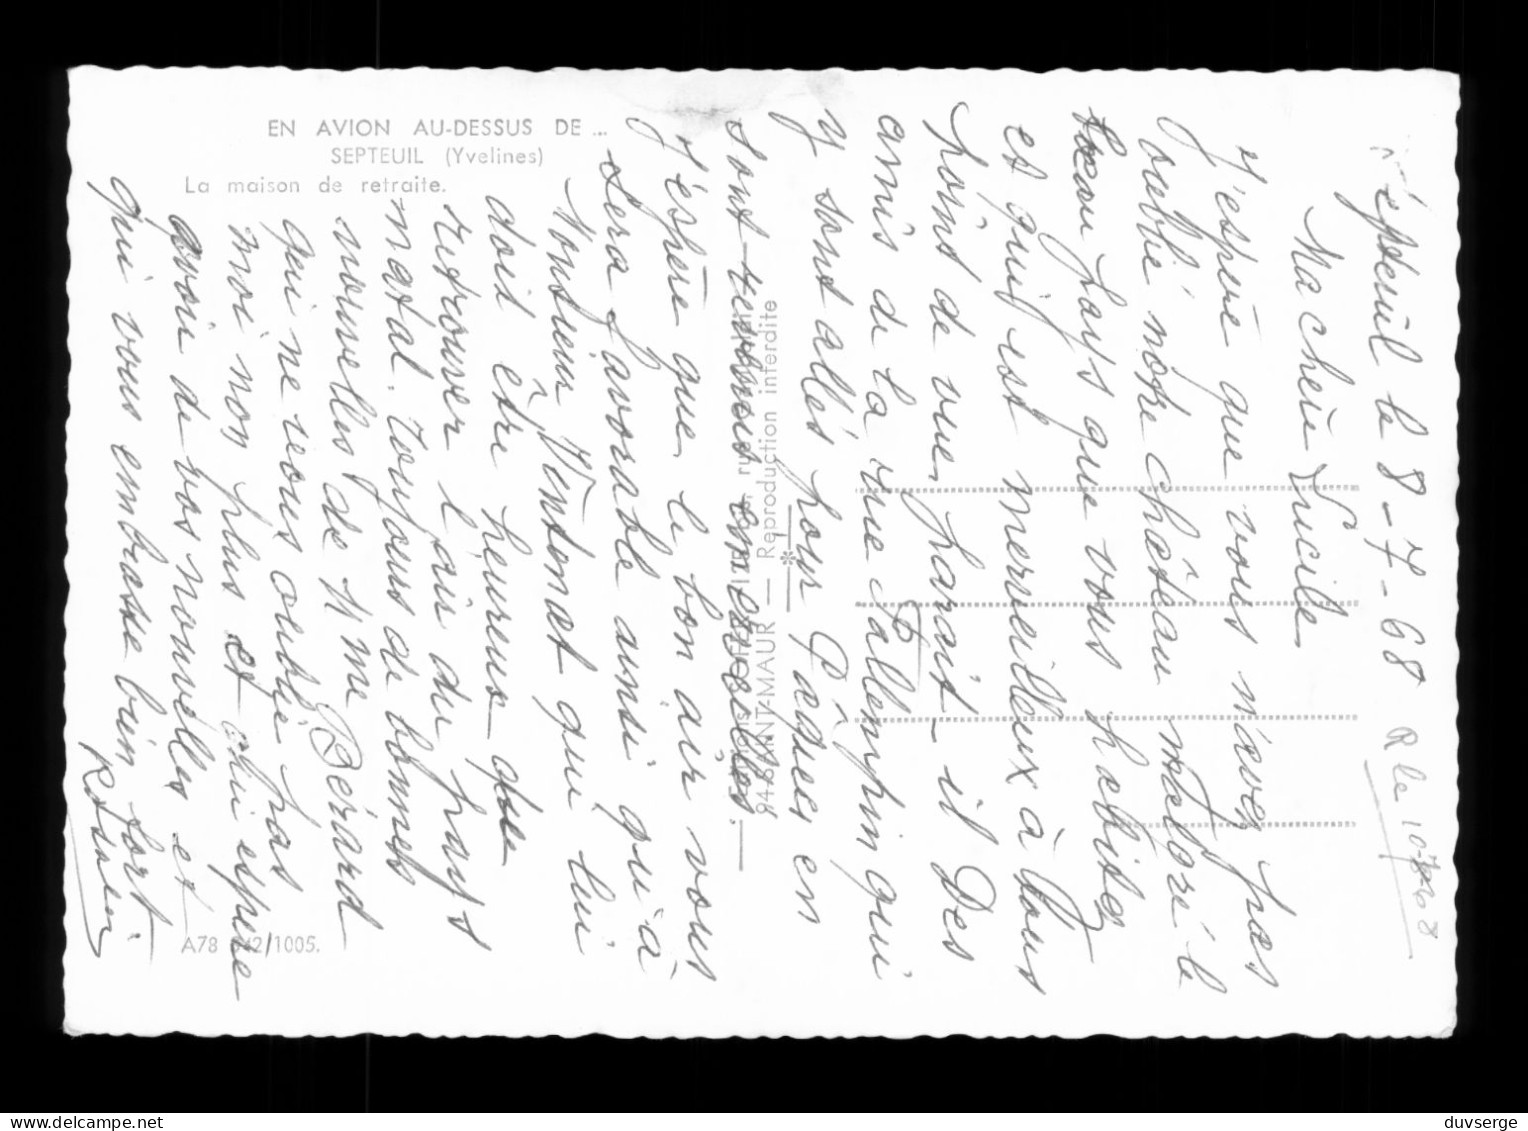 EN AVION AU-DESSUS DE ...
SEPTEUIL (Yvelines)
La maison de retraite.
Septeuil le 8-7-68
R le 10-7-68
Ma chère Lucile
J'espère que vous n'avez pas
oublié notre château malgré le
beau pays que vous habitez
et qui est merveilleux à tous
points de vue, parait-il Des
amis de la rue qui
y sont allés pour Pâques en
sont revenus
J'espère que le bon air vous
sera favorable ainsi qu'à
Monsieur qui lui
doit être heureux de
retrouver l'air du pays
natal. Toujours de bonnes
nouvelles de Mme Bérard
qui ne vous oublie pas
moi non plus et qui espère
avoir de vos nouvelles et
qui vous embrasse bien fort
94-SAINT-MAUR — Reproduction interdite
A78 /1005.
duvserge
delcampe.net